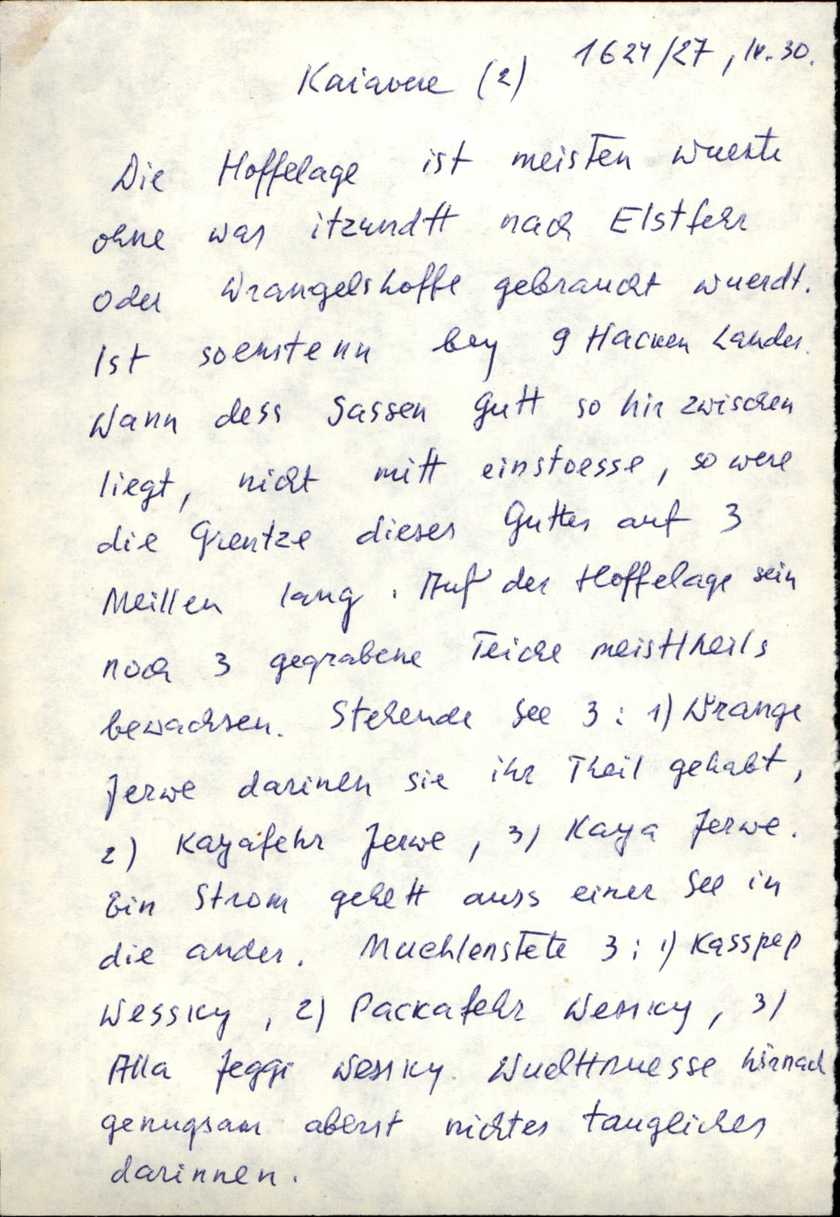 Kaiavere (2) 1624/27, IV.30.
Die Hoffelage ist meisten wueste
ohne was itzundtt nach Elstfehr
oder Wrangelshoffe gebraucht wuerdt.
Ist sonstenn bey 9 Hacken Landes.
Wann dess Sassen Gutt so hir zwischen
liegt, nicht mitt einstoesse, so were
die Grentze dieses Guttes auf 3
Meillen lang. Auf der Hoffelage sein
noch 3 gegrabene Teiche meisttheils
bewachsen. Stehende See 3: 1) Wrange
Jerwe darinen sie ihr Theil gehabt,
2) Kayafehr Jerwe, 3) Kaya Jerwe.
Ein Strom gehett auss einer See in
die ander. Muehlenstete 3: 1) Kasspep
Wessky, 2) Packafehr Wessky, 3)
Alla Jeggi Wessky. hirnach
genugsam aberst nichtes taugliches
darinnen.